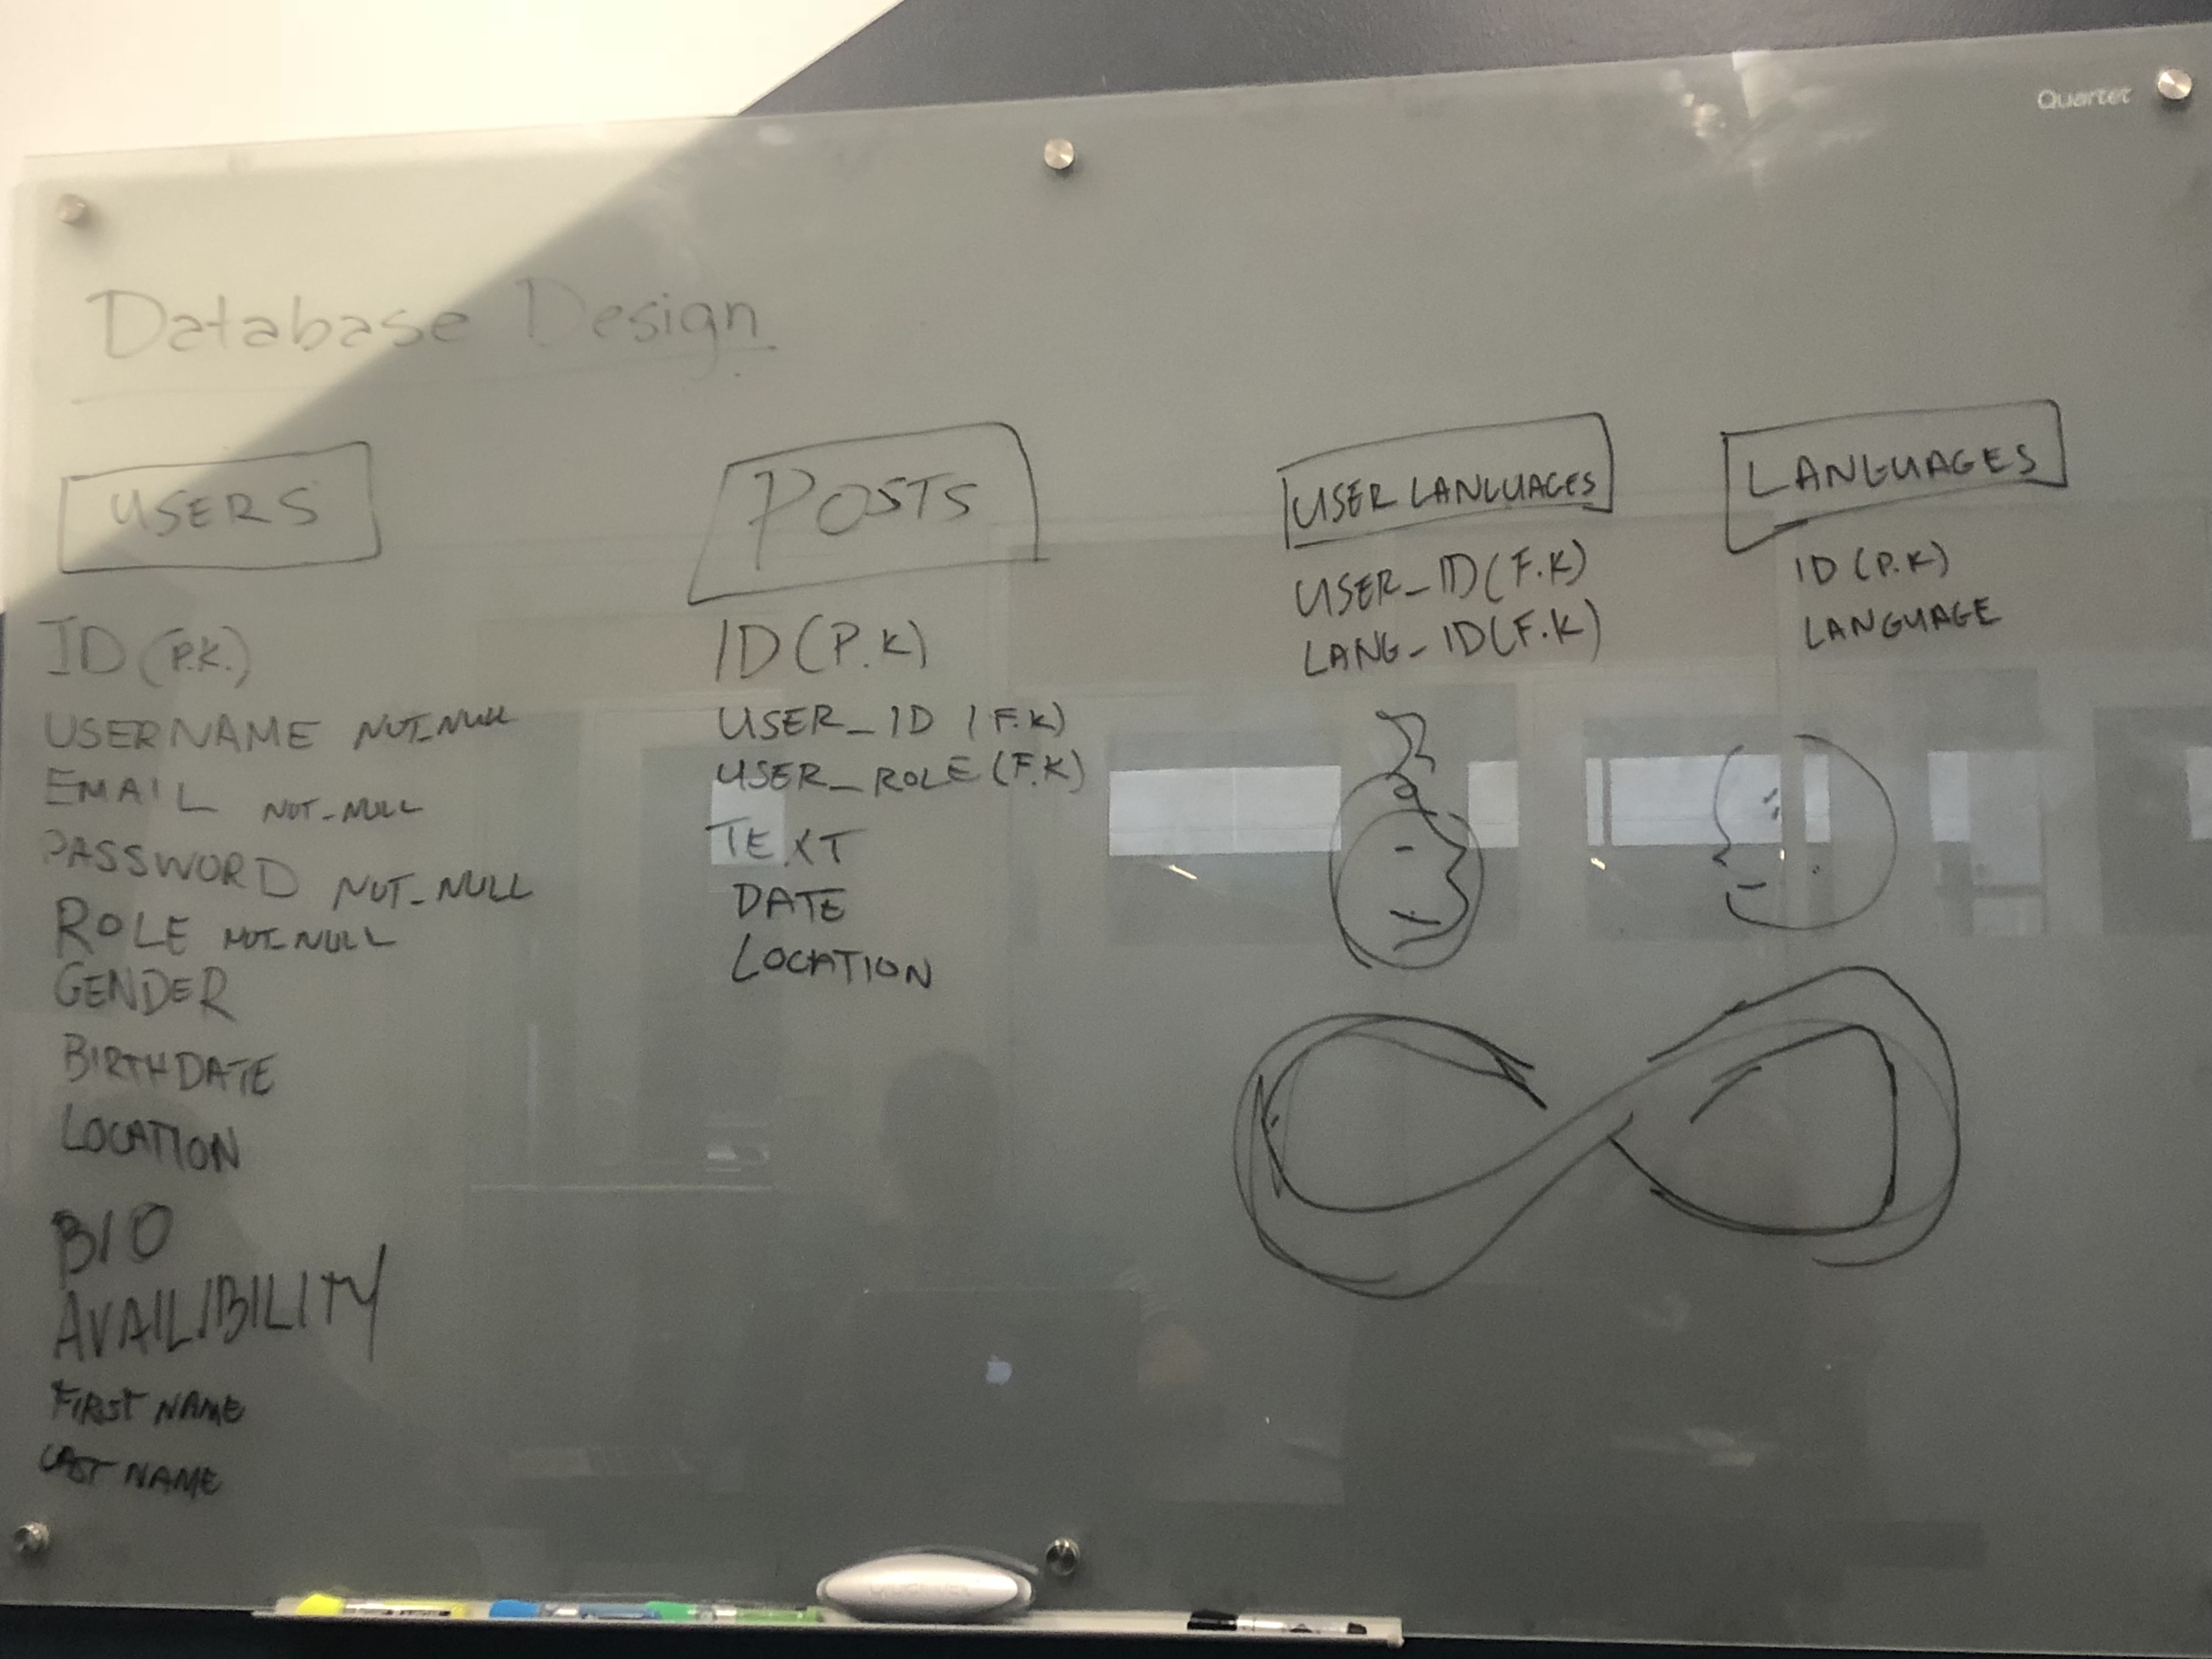 Quartet
Database Design
USERS
ID (P.K.)
USERNAME NOT_NULL
EMAIL NOT_NULL
PASSWORD NOT_NULL
ROLE NOT_NULL
GENDER
BIRTHDATE
LOCATION
BIO
AVAILIBILITY
FIRST NAME
LAST NAME
POSTS
ID (P.K)
USER_ID (F.K)
USER_ROLE (F.K)
TEXT
DATE
LOCATION
USER LANGUAGES
USER_ID (F.K)
LANG_ID (F.K)
LANGUAGES
ID (P.K)
LANGUAGE